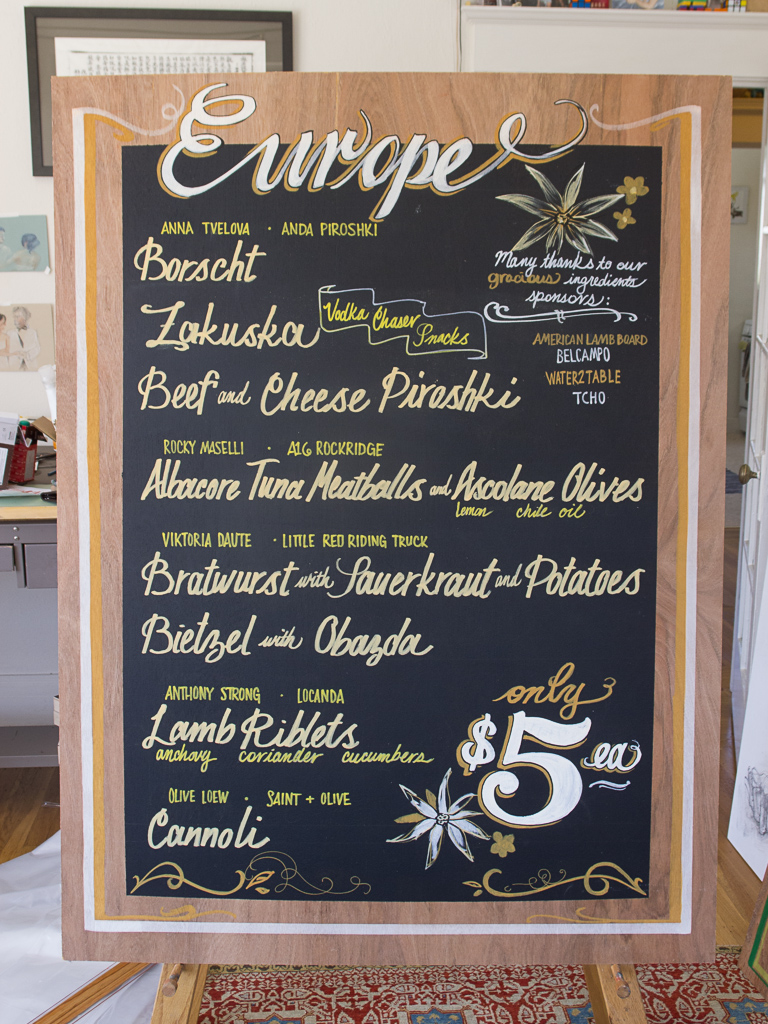 Europe
ANNA TVELOVA · ANDA PIROSHKI
Borscht
Zakuska
Vodka Chaser Snacks
Beef and Cheese Piroshki
Many thanks to our
gracious ingredients
sponsors:
AMERICAN LAMB BOARD
BELCAMPO
WATER2TABLE
TCHO
ROCKY MASELLI · A16 ROCKRIDGE
Albacore Tuna Meatballs and Ascolane Olives
lemon chile oil
VIKTORIA DAUTE · LITTLE RED RIDING TRUCK
Bratwurst with Sauerkraut and Potatoes
Bietzel with Obazda
ANTHONY STRONG · LOCANDA
Lamb Riblets
anchovy coriander cucumbers
OLIVE LOEW · SAINT + OLIVE
Cannoli
only
$5 ea